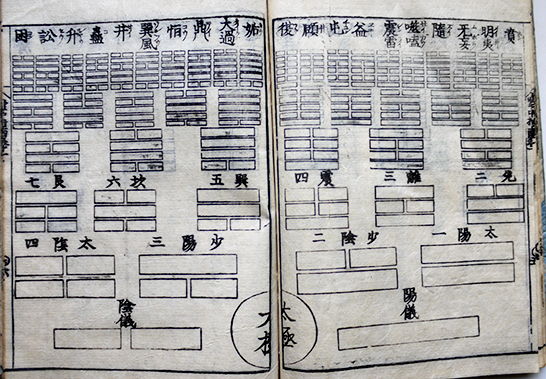 賁 明夷 无妄 隨 噬嗑 震雷 益 屯 頤 復
姤 大過 鼎 恒 巽風 井 蠱 升 訟 困
兌二 離三 震四 巽五 坎六 艮七
太陽一 少陰二 少陽三 太陰四
陽儀 陰儀
太極